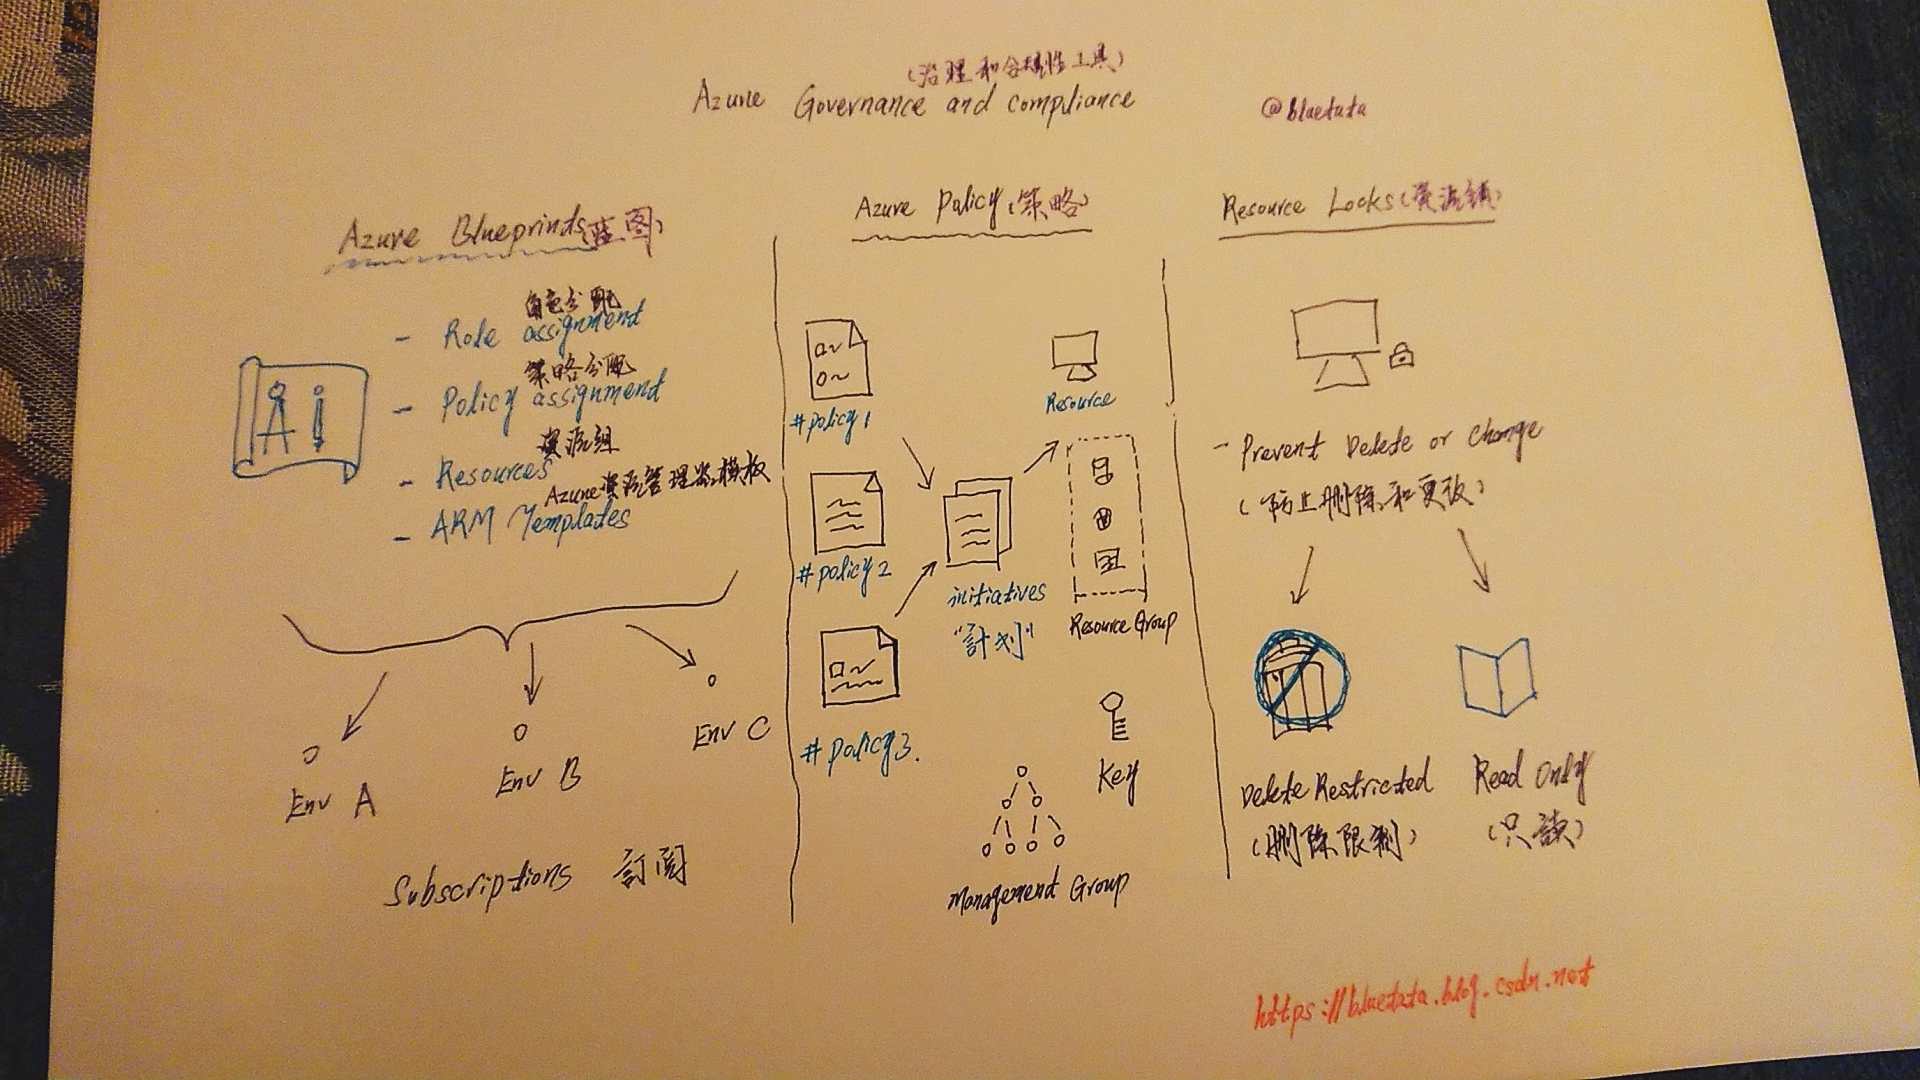 (治理和合规性工具)
Azure Governance and compliance
@bluetata
Azure Blueprints(蓝图)
角色分配
- Role assignment
策略分配
- Policy assignment
資源組
- Resources
Azure資源管理器模板
- ARM Templates
Env A
Env B
Env C
Subscriptions 訂阅
Azure Policy(策略)
#policy1
#policy2
#policy3.
initiatives
"計划"
Resource
Resource Group
Key
Management Group
Resource Locks(資源鎖)
- Prevent Delete or Change
(防止删除和更改)
Delete Restricted
(删除限制)
Read Only
(只読)
https://bluetata.blog.csdn.net